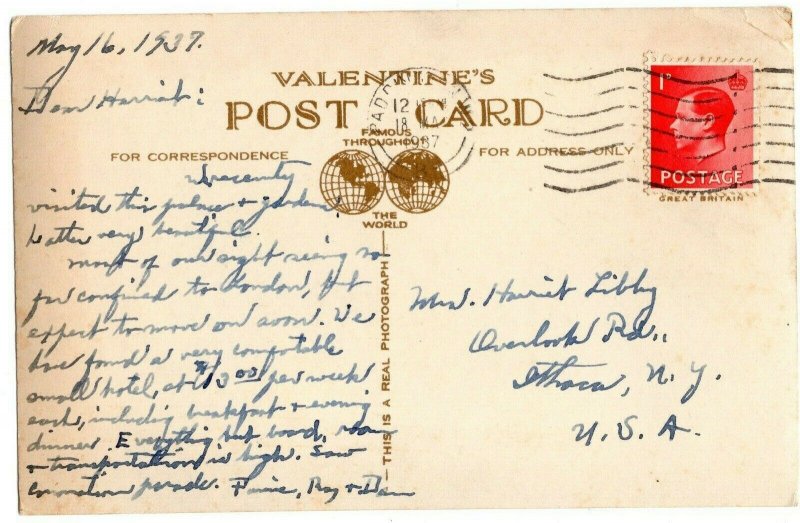 May 16, 1937.
Dear Harriet:
VALENTINE'S
POST CARD
FAMOUS
THROUGHOUT
THE
WORLD
FOR CORRESPONDENCE
FOR ADDRESS ONLY
PADD
12
18 MA
1937
1D
POSTAGE
GREAT BRITAIN
We recently
visited this palace & gardens,
latter very beautiful.
Most of our sight seeing so
far confined to London, but
expect to move on soon. We
have found a very comfortable
small hotel, at $13.00 per week
each, including breakfast & evening
dinner. Everything but board, room
& transportation is high. Saw
coronation parade. Ray &
THIS IS A REAL PHOTOGRAPH
Mrs. Harriet Libby
Overlook Rd.,
Ithaca, N. Y.
U. S. A.